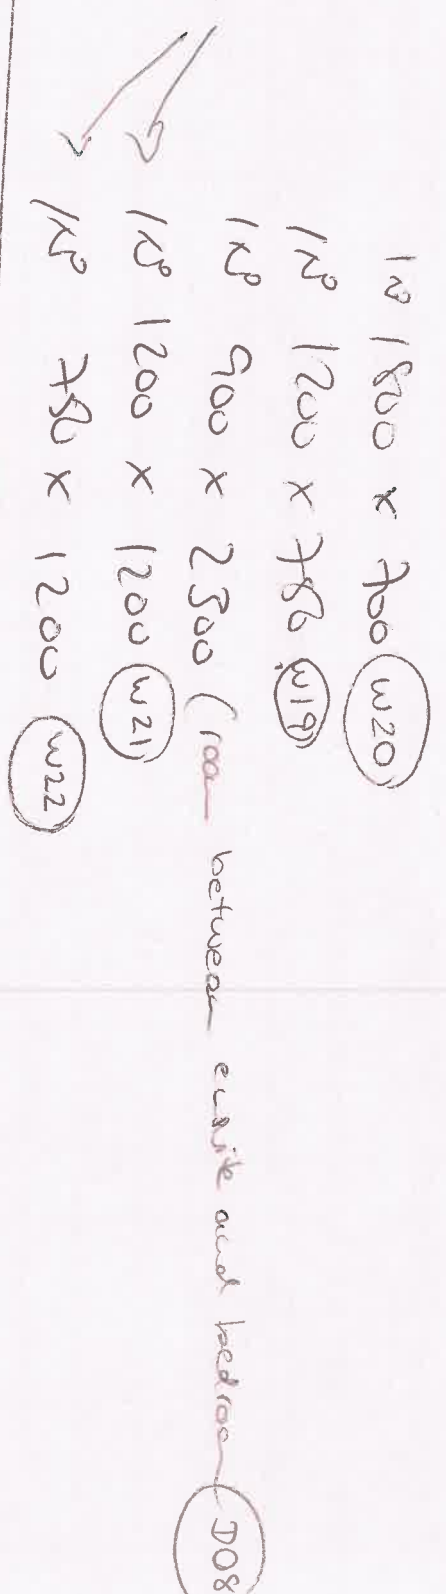 1No 1800 x 700 W20
1No 1200 x 750 W19
1No 900 x 2500 (room between ensuite and bedroom D08
1No 1200 x 1200 W21
1No 750 x 1200 W22